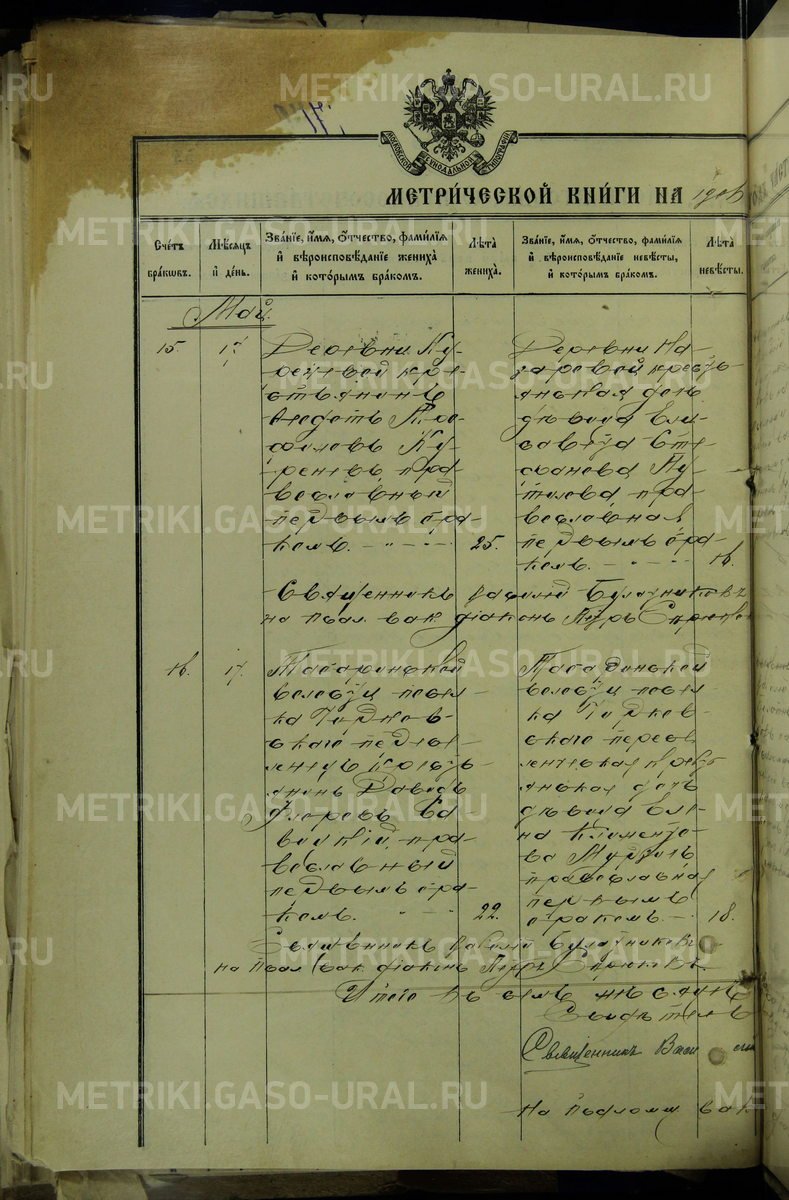 METRIKI.GASO-URAL.RU
МОСКОВСКОЙ СѴНОДАЛЬНОЙ ТИПОГРАФІИ
МЕТРИ́ЧЕСКОЙ КНИ́ГИ НА 1906
Счетъ бракѡвъ.
Мѣсяцъ и день.
Званіе, имя, отчество, фамилія и вѣроисповѣданіе жениха и которымъ бракомъ.
Лѣта жениха.
Званіе, имя, отчество, фамилія и вѣроисповѣданіе невѣсты, и которымъ бракомъ.
Лѣта невѣсты.
Май.
15.
17
Деревни Ку-
реневой кре-
стьянинъ
Ку-
реневъ пра-
вославный
первымъ бра-
комъ.
25.
Деревни На-
заровой кресть-
янская дочь
дѣвица Ели-
савета Сте-
фанова Пу-
тилова пра-
вославная
первымъ бра-
комъ.
16.
Священникъ Василій Булатниковъ
на псал. вак. діаконъ Петръ
16.
17.
Табаринской
волости посел-
ка
скаго пересе-
ленецъ кресть-
янинъ Давидъ
пра-
вославный
первымъ бра-
комъ.
22.
Табаринской
волости посел-
ка
скаго пересе-
ленческая кресть-
янская дочь
дѣвица Еле-
на Климентье-
ва
православная
первымъ
бракомъ.
18.
Священникъ Василій Булатниковъ
на псал. вак. діаконъ Петръ
Итого въ семъ мѣсяцѣ
Священникъ Васи
На псалом. вак.